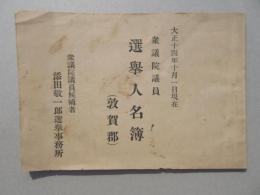 大正十四年十月一日現在
衆議院議員
選擧人名簿
(敦賀郡)
衆議院議員候補者
添田敬一郎選擧事務所